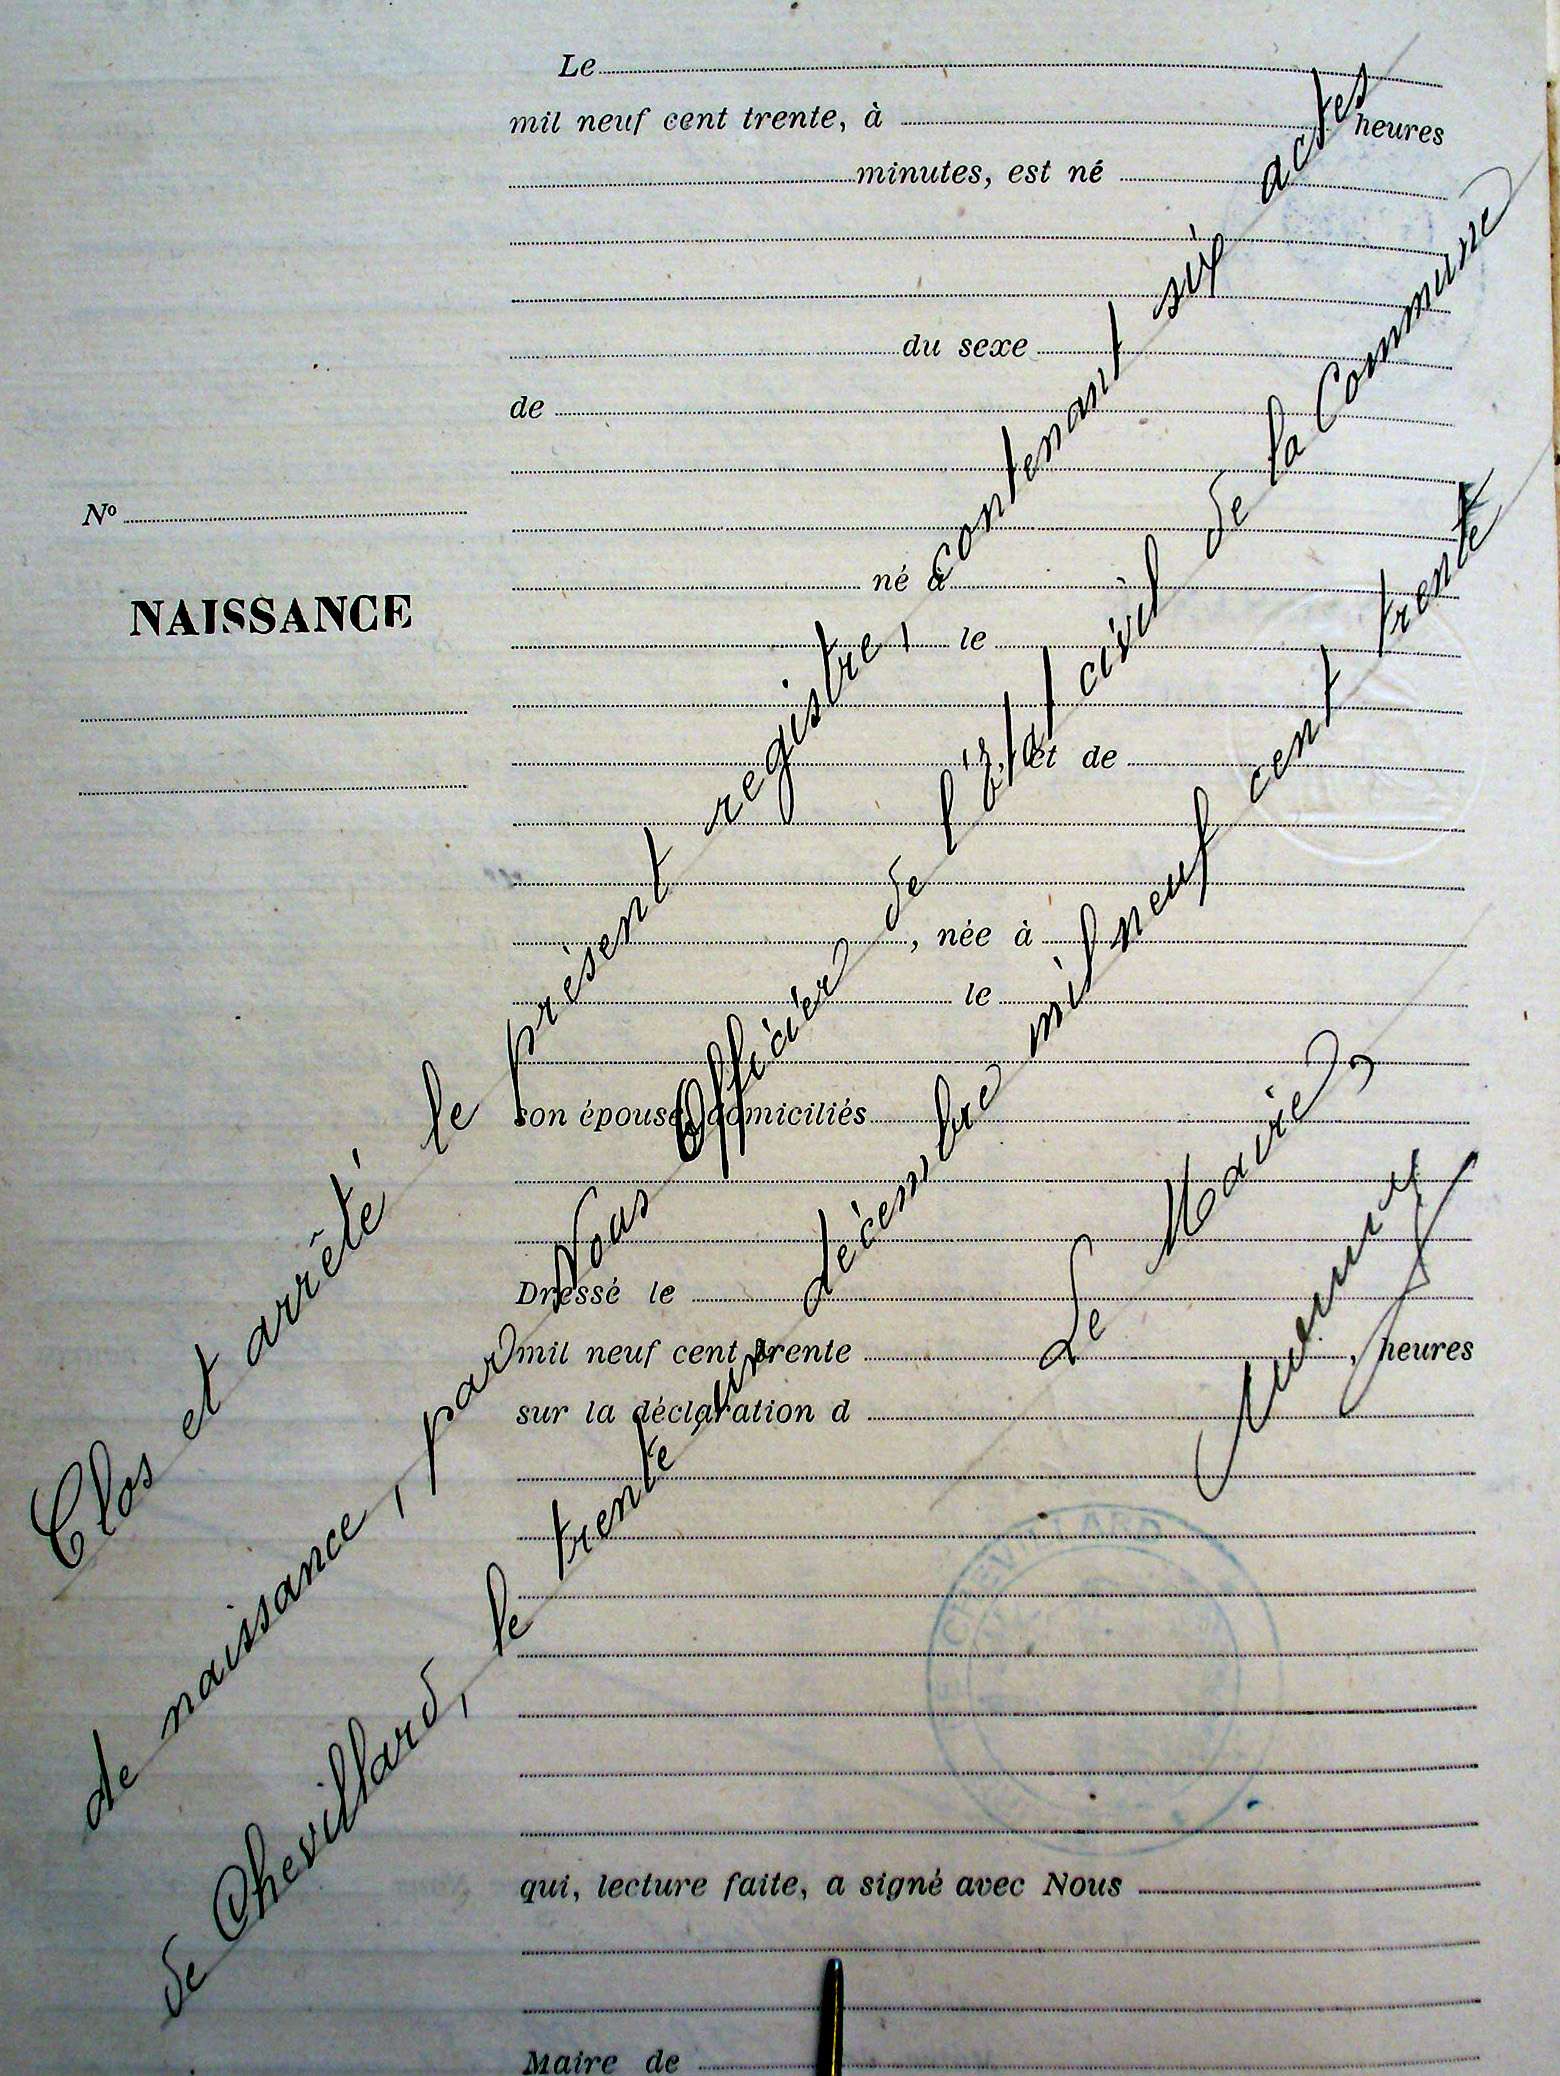 Le
mil neuf cent trente, à heures
minutes, est né
du sexe
de
né à
le
et de
, née à
le
son épouse, domiciliés
Dressé le
mil neuf cent trente , heures
sur la déclaration d
qui, lecture faite, a signé avec Nous
Maire de
Nº
NAISSANCE
Clos et arrêté le présent registre, contenant six actes
de naissance, par Nous Officier de l'état civil de la Commune
de Chevillard, le trente un décembre mil neuf cent trente
Le Maire,
CHEVILLARD